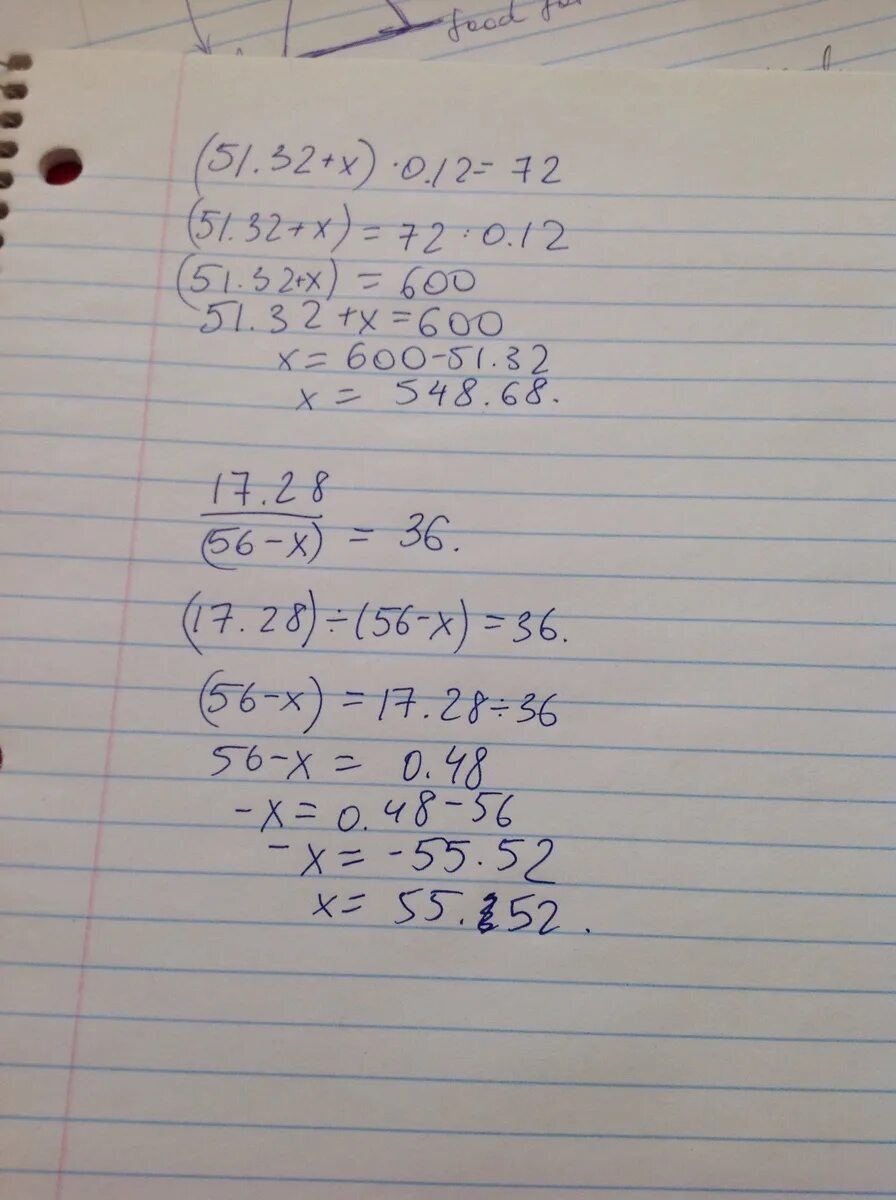 food for
(51.32+x) ·0.12= 72
(51.32+x) = 72 : 0.12
(51.32+x) = 600
51.32 +x=600
x= 600-51.32
x = 548.68.
17.28
(56-x) = 36.
(17.28)÷(56-x) =36.
(56-x) =17.28÷36
56-x = 0.48
-x= 0.48-56
-x= -55.52
x= 55.52.